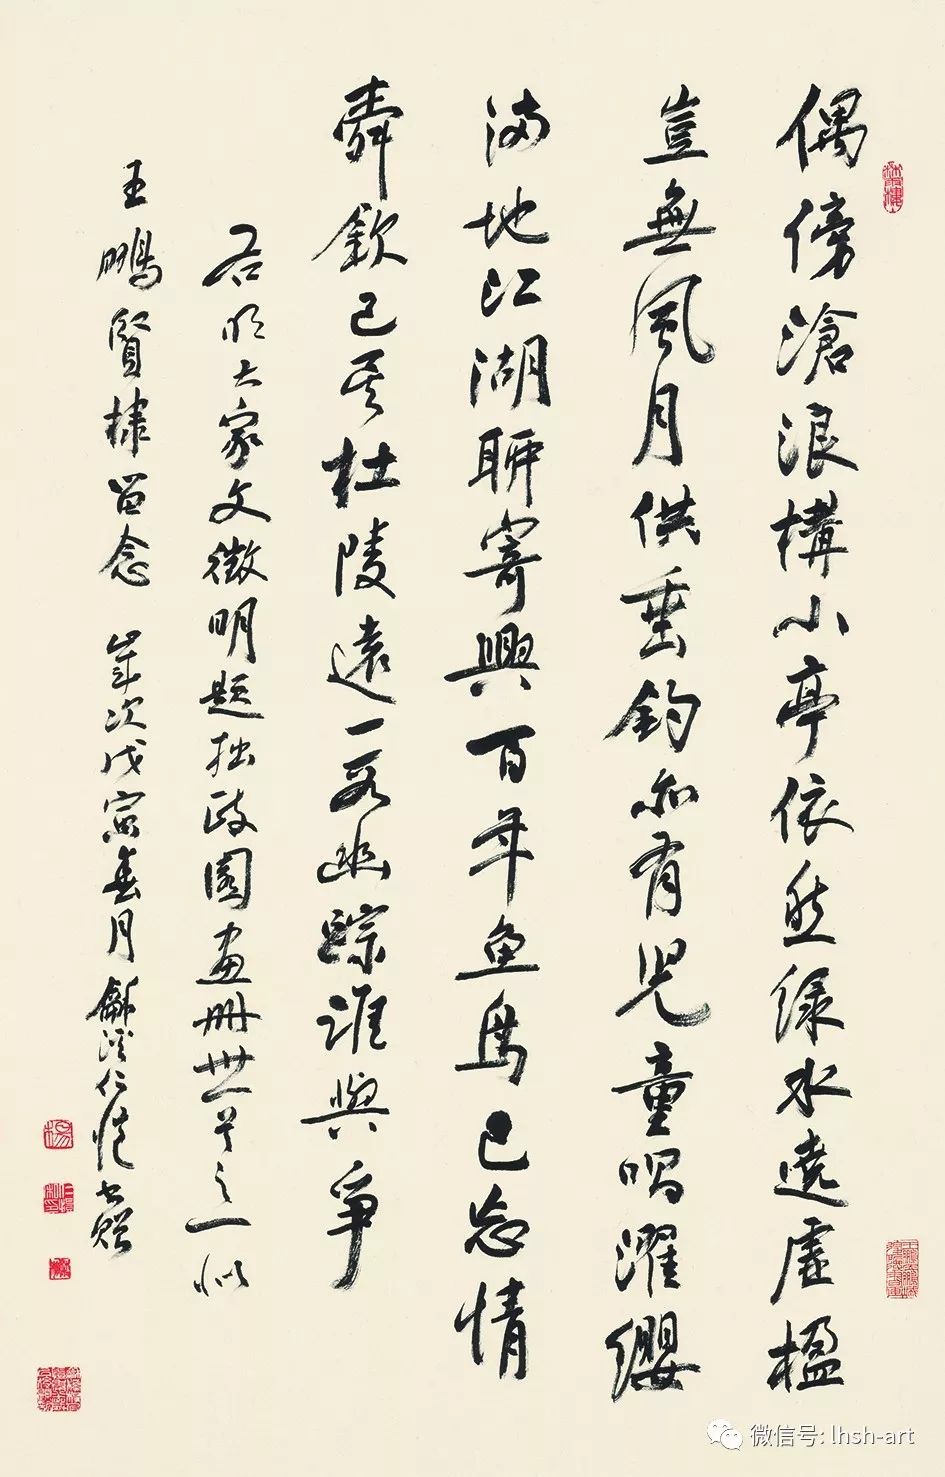 偶傍滄浪構小亭依然綠水遶虛楹
豈無風月供垂釣亦有兒童唱濯纓
滿地江湖聊寄興百年鱼鳥已忘情
舜欽已矣杜陵遠一段幽踪誰與爭
右明大家文徵明題拙政園画冊卅一首之一似
王鵬賢棣留念 歲次戊寅春月龢溪仁愷書贈
微信号: lhsh-art